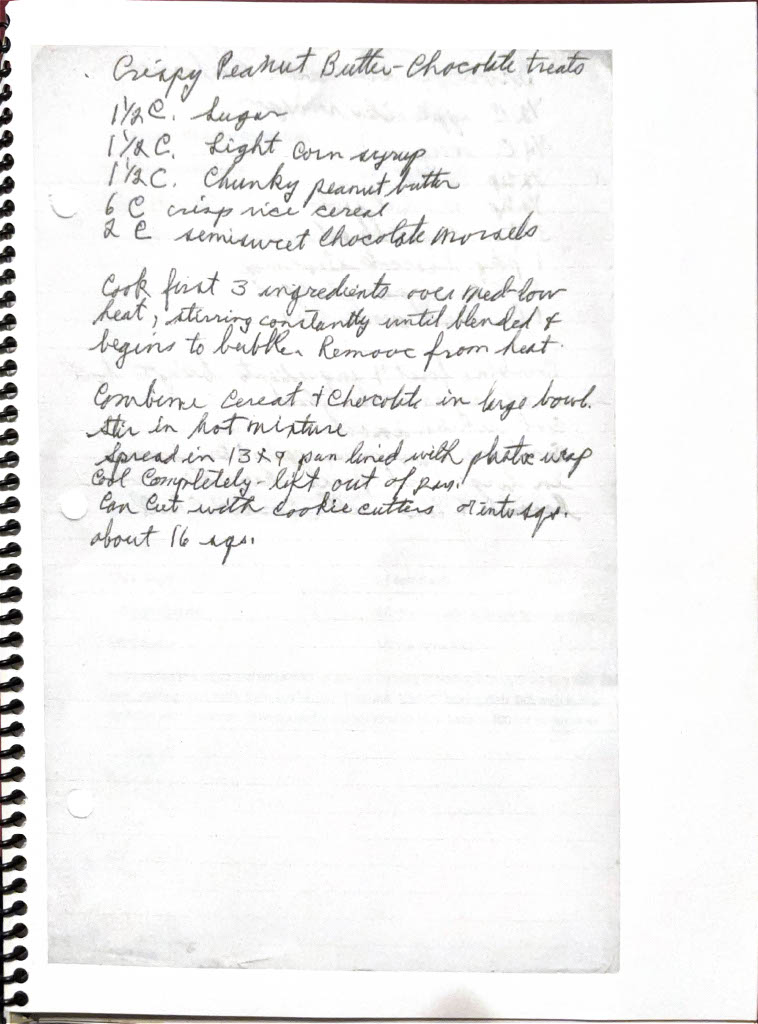 Crispy Peanut Butter-Chocolate treats
1 1/2 C. Sugar
1 1/2 C. Light corn syrup
1 1/2 C. Chunky peanut butter
6 C crisp rice cereal
2 C semisweet Chocolate morsels
Cook first 3 ingredients over med-low
heat, stirring constantly until blended &
begins to bubble. Remove from heat.
Combine Cereal & Chocolate in large bowl.
Stir in hot mixture
Spread in 13x9 pan lined with plastic wrap
Cool Completely - lift out of pan.
Can Cut with cookie cutters or into sqs.
about 16 sqs.